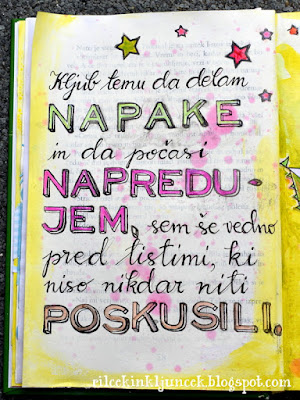 Kljub temu da delam
NAPAKE
in da počasi
NAPREDU-
JEM, sem še vedno
pred tistimi, ki
niso nikdar niti
POSKUSILI.
cilcekinkljuncek.blogspot.com